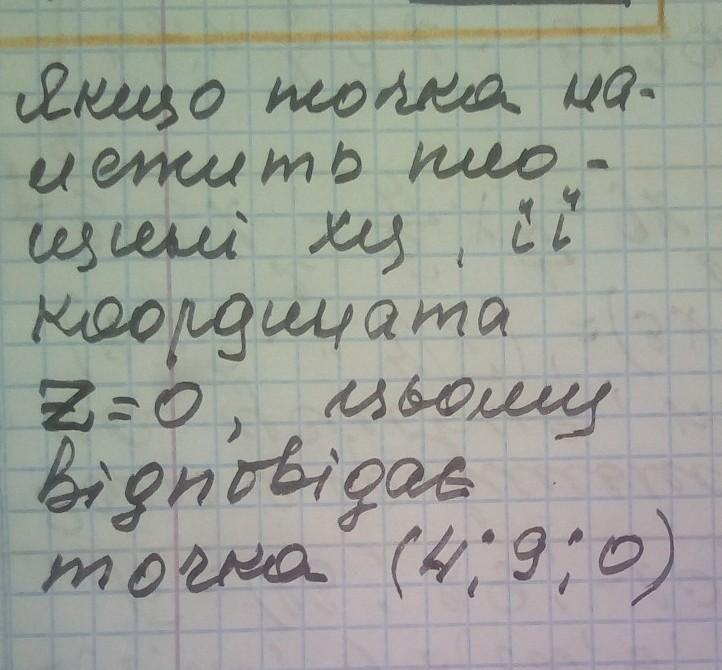 Якщо точка на-
лежить пло-
щині xy, її
координата
z=0, цьому
відповідає
точка (4;9;0)